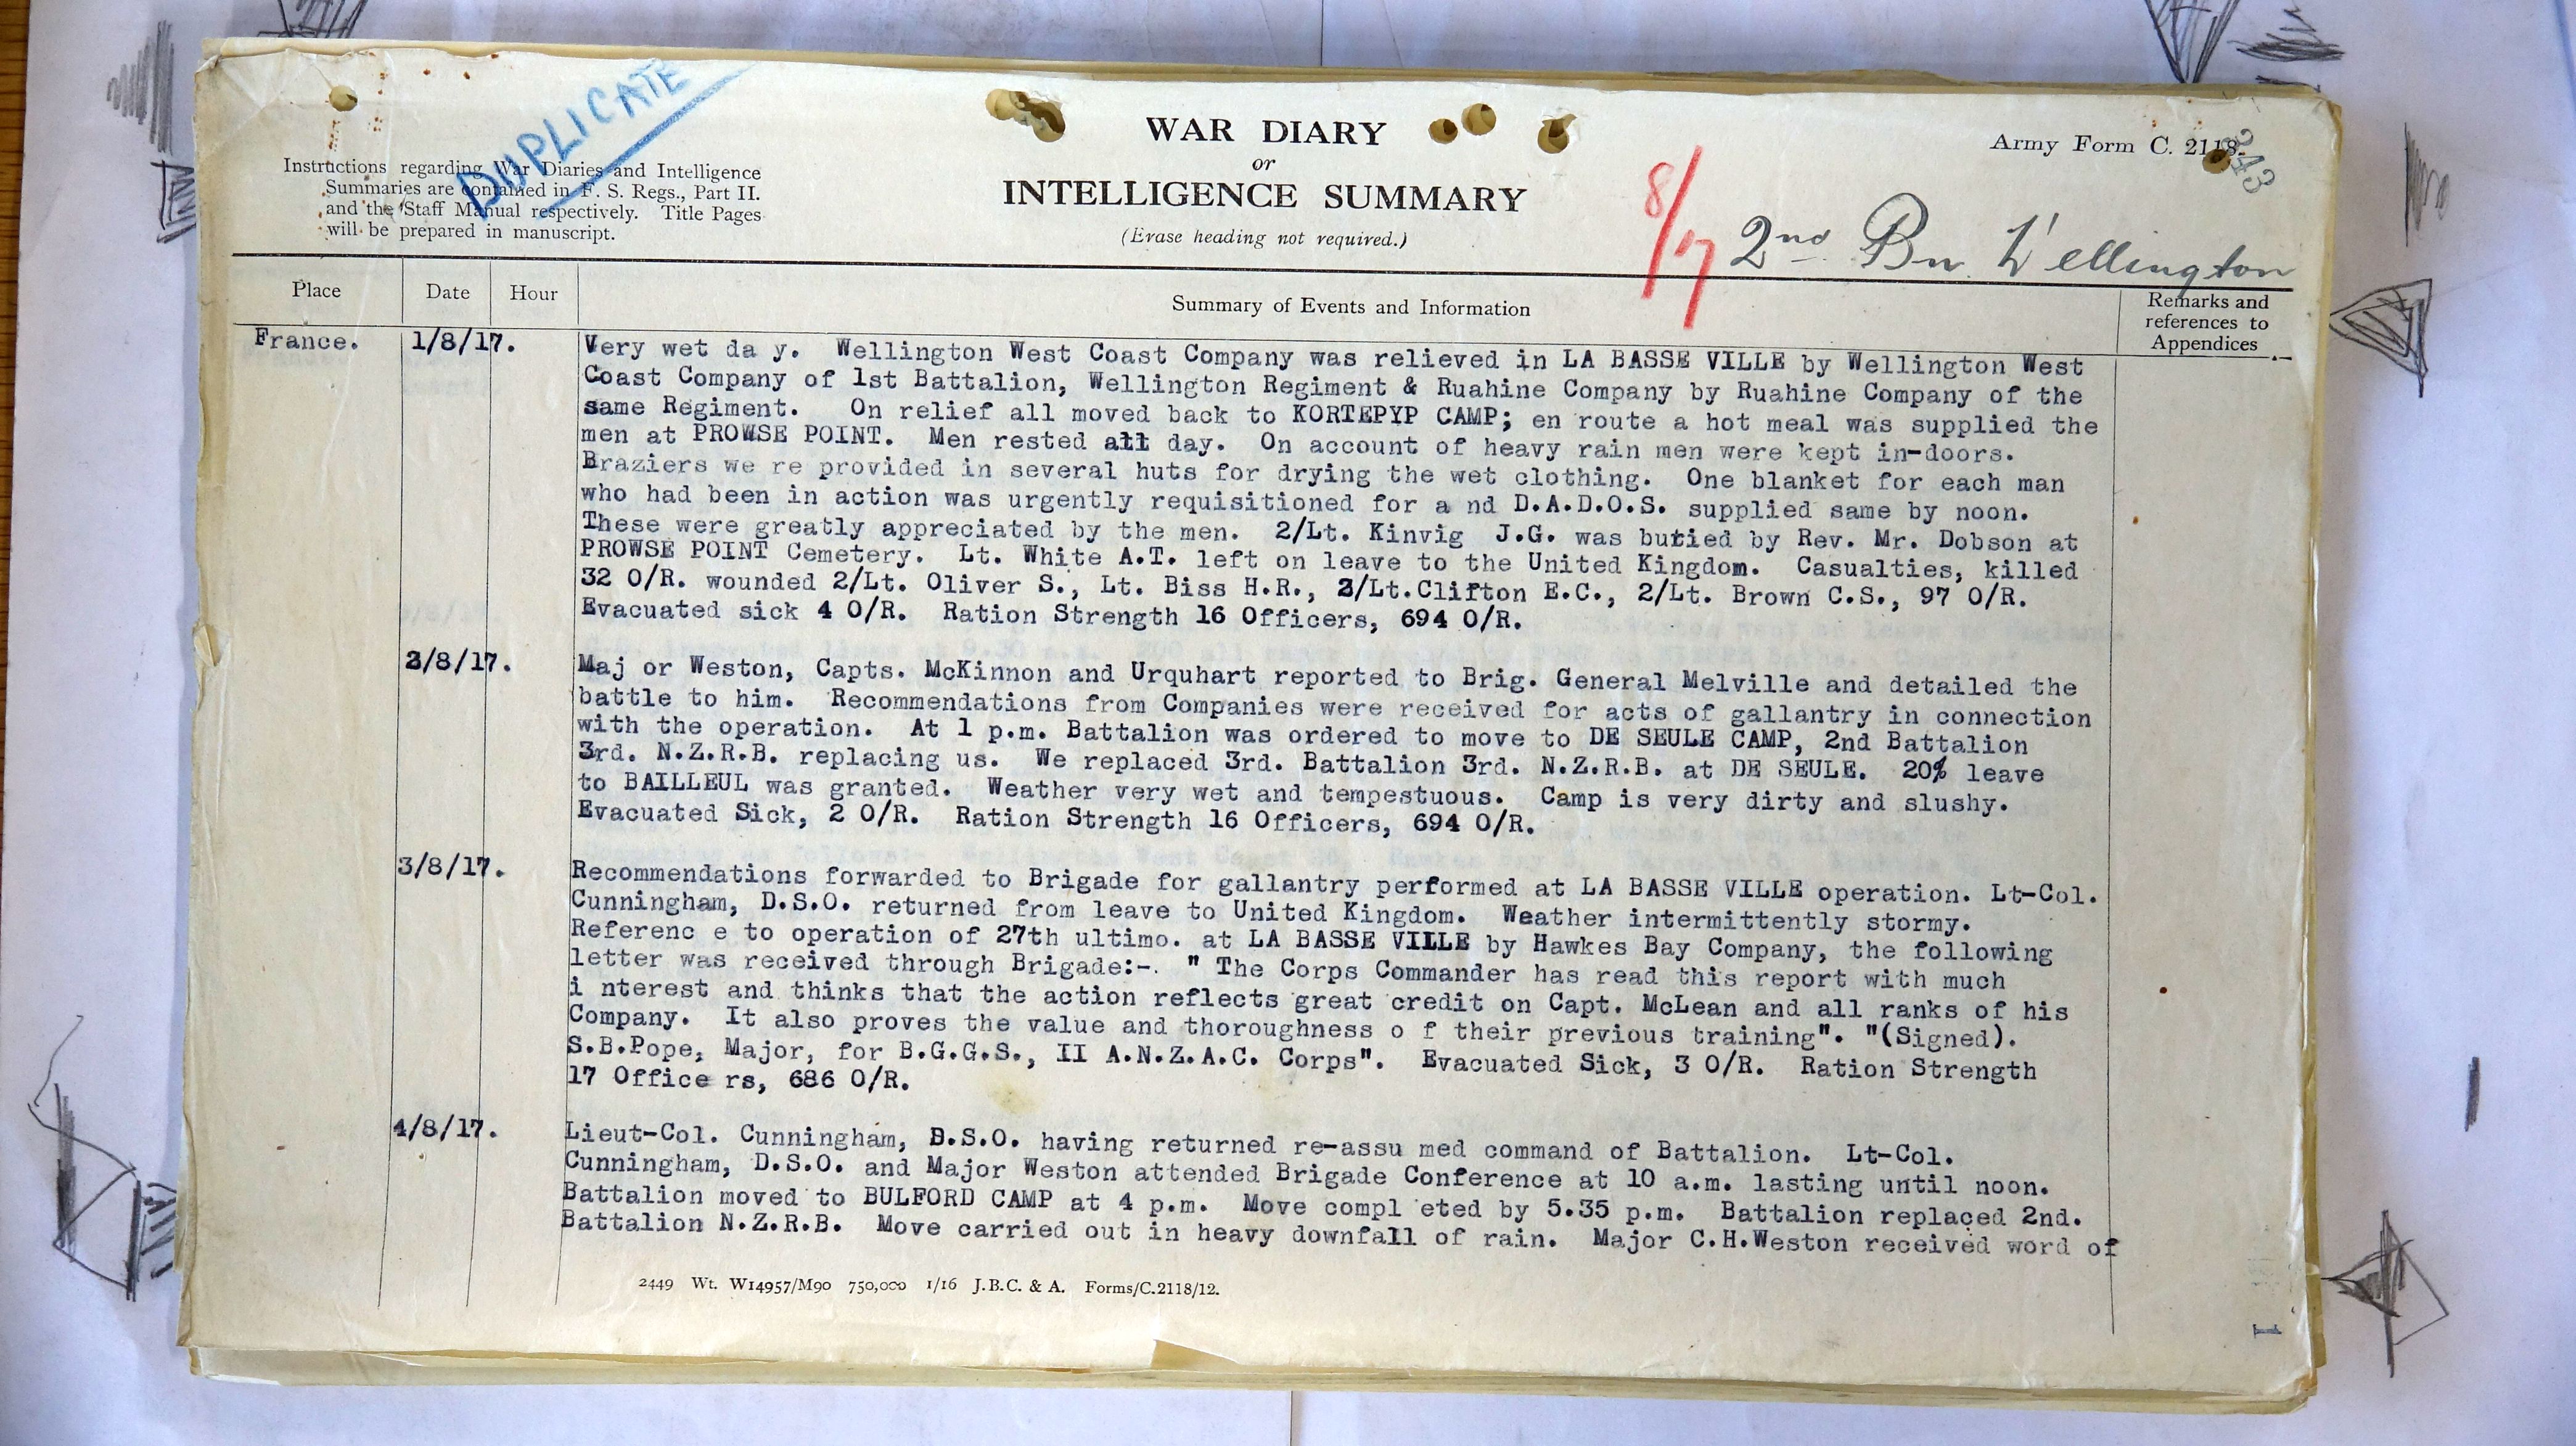 DUPLICATE
Instructions regarding War Diaries and Intelligence
Summaries are contained in F. S. Regs., Part II.
and the Staff Manual respectively. Title Pages
will be prepared in manuscript.
WAR DIARY
or
INTELLIGENCE SUMMARY
(Erase heading not required.)
Army Form C. 2118.
243
8/17
2nd Bn Wellington
Place
Date
Hour
Summary of Events and Information
Remarks and
references to
Appendices
France.
1/8/17.
Very wet da y. Wellington West Coast Company was relieved in LA BASSE VILLE by Wellington West
Coast Company of 1st Battalion, Wellington Regiment & Ruahine Company by Ruahine Company of the
same Regiment. On relief all moved back to KORTEPYP CAMP; en route a hot meal was supplied the
men at PROWSE POINT. Men rested all day. On account of heavy rain men were kept in-doors.
Braziers we re provided in several huts for drying the wet clothing. One blanket for each man
who had been in action was urgently requisitioned for a nd D.A.D.O.S. supplied same by noon.
These were greatly appreciated by the men. 2/Lt. Kinvig J.G. was buried by Rev. Mr. Dobson at
PROWSE POINT Cemetery. Lt. White A.T. left on leave to the United Kingdom. Casualties, killed
32 O/R. wounded 2/Lt. Oliver S., Lt. Biss H.R., 2/Lt.Clifton E.C., 2/Lt. Brown C.S., 97 O/R.
Evacuated sick 4 O/R. Ration Strength 16 Officers, 694 O/R.
2/8/17.
Maj or Weston, Capts. McKinnon and Urquhart reported to Brig. General Melville and detailed the
battle to him. Recommendations from Companies were received for acts of gallantry in connection
with the operation. At 1 p.m. Battalion was ordered to move to DE SEULE CAMP, 2nd Battalion
3rd. N.Z.R.B. replacing us. We replaced 3rd. Battalion 3rd. N.Z.R.B. at DE SEULE. 20% leave
to BAILLEUL was granted. Weather very wet and tempestuous. Camp is very dirty and slushy.
Evacuated Sick, 2 O/R. Ration Strength 16 Officers, 694 O/R.
3/8/17.
Recommendations forwarded to Brigade for gallantry performed at LA BASSE VILLE operation. Lt-Col.
Cunningham, D.S.O. returned from leave to United Kingdom. Weather intermittently stormy.
Referenc e to operation of 27th ultimo. at LA BASSE VILLE by Hawkes Bay Company, the following
letter was received through Brigade:-. " The Corps Commander has read this report with much
i nterest and thinks that the action reflects great credit on Capt. McLean and all ranks of his
Company. It also proves the value and thoroughness o f their previous training". "(Signed).
S.B.Pope, Major, for B.G.G.S., II A.N.Z.A.C. Corps". Evacuated Sick, 3 O/R. Ration Strength
17 Office rs, 686 O/R.
4/8/17.
Lieut-Col. Cunningham, D.S.O. having returned re-assu med command of Battalion. Lt-Col.
Cunningham, D.S.O. and Major Weston attended Brigade Conference at 10 a.m. lasting until noon.
Battalion moved to BULFORD CAMP at 4 p.m. Move compl eted by 5.35 p.m. Battalion replaced 2nd.
Battalion N.Z.R.B. Move carried out in heavy downfall of rain. Major C.H.Weston received word of
2449 Wt. W14957/M90 750,000 1/16 J.B.C. & A. Forms/C.2118/12.
1